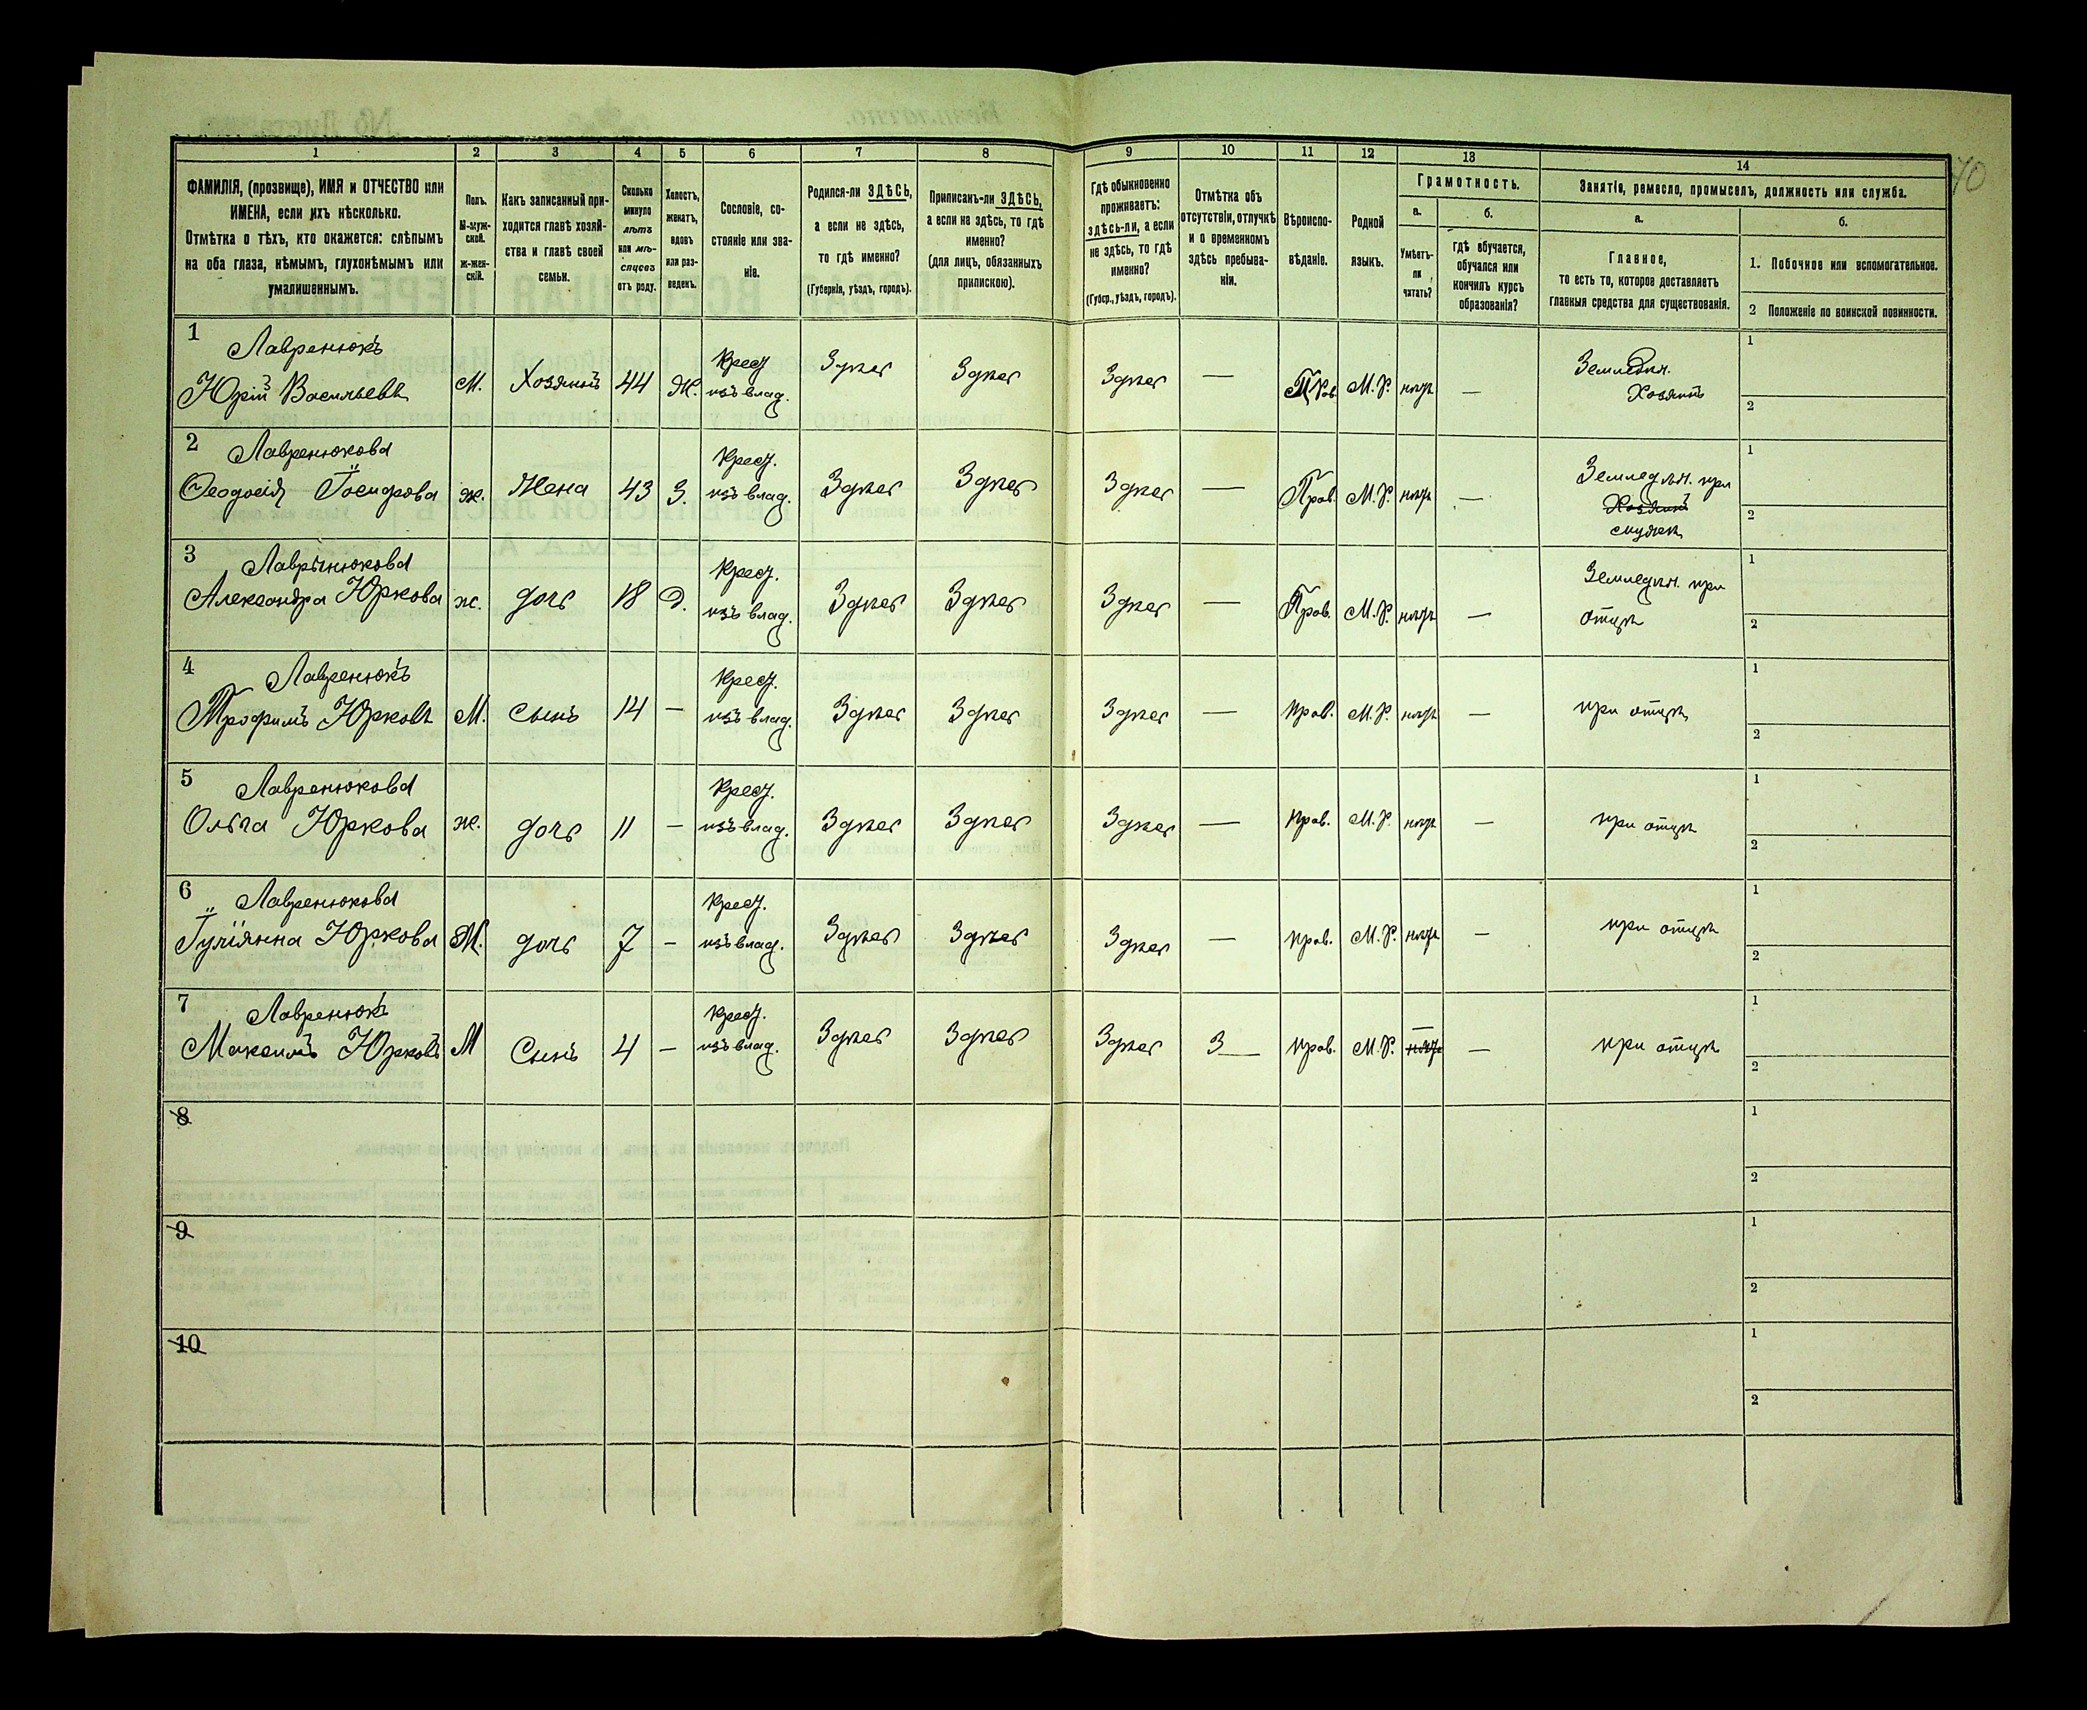 40
1 2 3 4 5 6 7 8 9 10 11 12 13 14
ФАМИЛІЯ, (прозвище), ИМЯ и ОТЧЕСТВО или
ИМЕНА, если ихъ нѣсколько.
Отмѣтка о тѣхъ, кто окажется: слѣпымъ
на оба глаза, нѣмымъ, глухонѣмымъ или
умалишеннымъ.
Полъ.
М-муж-
ской.
ж-жен-
скій.
Какъ записанный при-
ходится главѣ хозяй-
ства и главѣ своей
семьи.
Сколько
минуло
лѣтъ
или мѣ-
сяцевъ
отъ роду.
Холостъ,
женатъ,
вдовъ
или раз-
веденъ.
Сословіе, со-
стояніе или зва-
ніе.
Родился-ли ЗДѢСЬ,
а если не здѣсь,
то гдѣ именно?
(Губернія, уѣздъ, городъ).
Приписанъ-ли ЗДѢСЬ,
а если не здѣсь, то гдѣ
именно?
(для лицъ, обязанныхъ
припискою).
Гдѣ обыкновенно
проживаетъ:
здѣсь-ли, а если
не здѣсь, то гдѣ
именно?
(Губер., уѣздъ, городъ).
Отмѣтка объ
отсутствіи, отлучкѣ
и о временномъ
здѣсь пребыва-
ніи.
Вѣроиспо-
вѣданіе.
Родной
языкъ.
Грамотность.
а.
Умѣетъ-
ли
читать?
б.
гдѣ обучается,
обучался или
кончилъ курсъ
образованія?
Занятіе, ремесло, промыселъ, должность или служба.
а.
Главное,
то есть то, которое доставляетъ
главныя средства для существованія.
б.
1. Побочное или вспомогательное.
2 Положеніе по воинской повинности.
1
Лавренюкъ
Юрій Васильевъ М. Хозяинъ 44 Ж. Крест. изъ влад. Здѣсь Здѣсь Здѣсь — Пров. М.Р. нѣтъ — Земледѣл. Хозяинъ
1
2
2
Лавренюкова
Ѳеодосія Іосифова ж. Жена 43 З. Крест. изъ влад. Здѣсь Здѣсь Здѣсь — Прав. М.Р. нѣтъ — Земледѣл. при
Хозяинъ
мужѣ
1
2
3
Лавренюкова
Александра Юркова ж. дочь 18 Д. Крест. изъ влад. Здѣсь Здѣсь Здѣсь — Прав. М.Р. нѣтъ — Земледѣл. при
отцѣ
1
2
4
Лавренюкъ
Трофимъ Юрковъ М. Сынъ 14 — Крест. изъ влад. Здѣсь Здѣсь Здѣсь — прав. М.Р. нѣтъ — при отцѣ
1
2
5
Лавренюкова
Ольга Юркова ж. дочь 11 — Крест. изъ влад. Здѣсь Здѣсь Здѣсь — прав. М.Р. нѣтъ — при отцѣ
1
2
6
Лавренюкова
Іуліянна Юркова М. дочь 7 — Крест. изъ влад. Здѣсь Здѣсь Здѣсь — прав. М.Р. нѣтъ — при отцѣ
1
2
7
Лавренюкъ
Максимъ Юрковъ М Сынъ 4 — Крест. изъ влад. Здѣсь Здѣсь Здѣсь З— прав. М.Р. — нѣтъ — при отцѣ
1
2
8
1
2
9
1
2
10
1
2